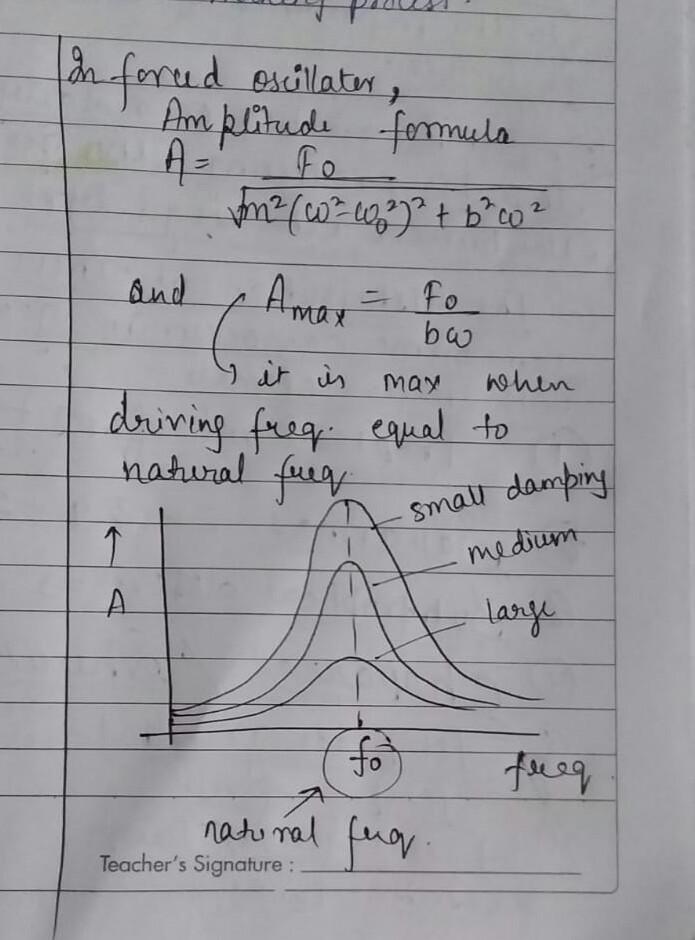 In forced oscillater,
Amplitude formula
A = F0 / √m²(ω²-ω0²)² + b²ω²
and Amax = F0 / bω
it is max when
driving freq. equal to
natural freq
small damping
medium
large
A
f0
freq
natural freq.
Teacher's Signature :